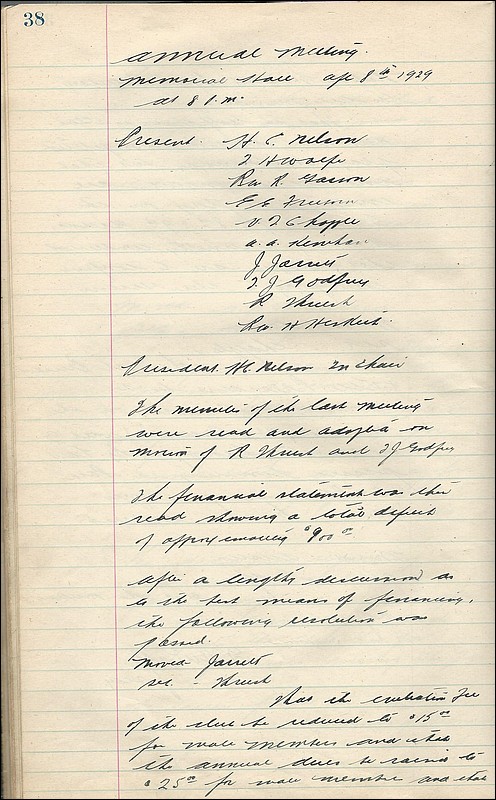 38
Annual Meeting.
Memorial Hall Apl 8th 1929
at 8 P.m.
Present. H. E. Nelson
Rev R. Gasson
E E Freeman
V. T. Chapple
A. A. Newhan
J. Jarrett
T J Godfrey
R Thrush
Rev. H Herbert.
President. HE Nelson In Chair
The minutes of the last meeting
were read and adopted on
motion of R Thrush and TJ Godfrey
The financial statement was then
read showing a total deficit
of approximating $900 00
After a lengthy discussion as
to the best means of financing,
the following resolution was
passed.
Moved - Jarrett
sec - Thrush
That the initiation Fee
of the club be reduced to $15 00
for male members and that
the annual dues be raised to
$25 00 for male member and that